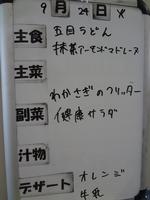 9月24日 火
主食 五目うどん
抹茶アーモンドマドレーヌ
主菜
わかさぎのフリッター
副菜 健康サラダ
汁物
デザート オレンジ
牛乳